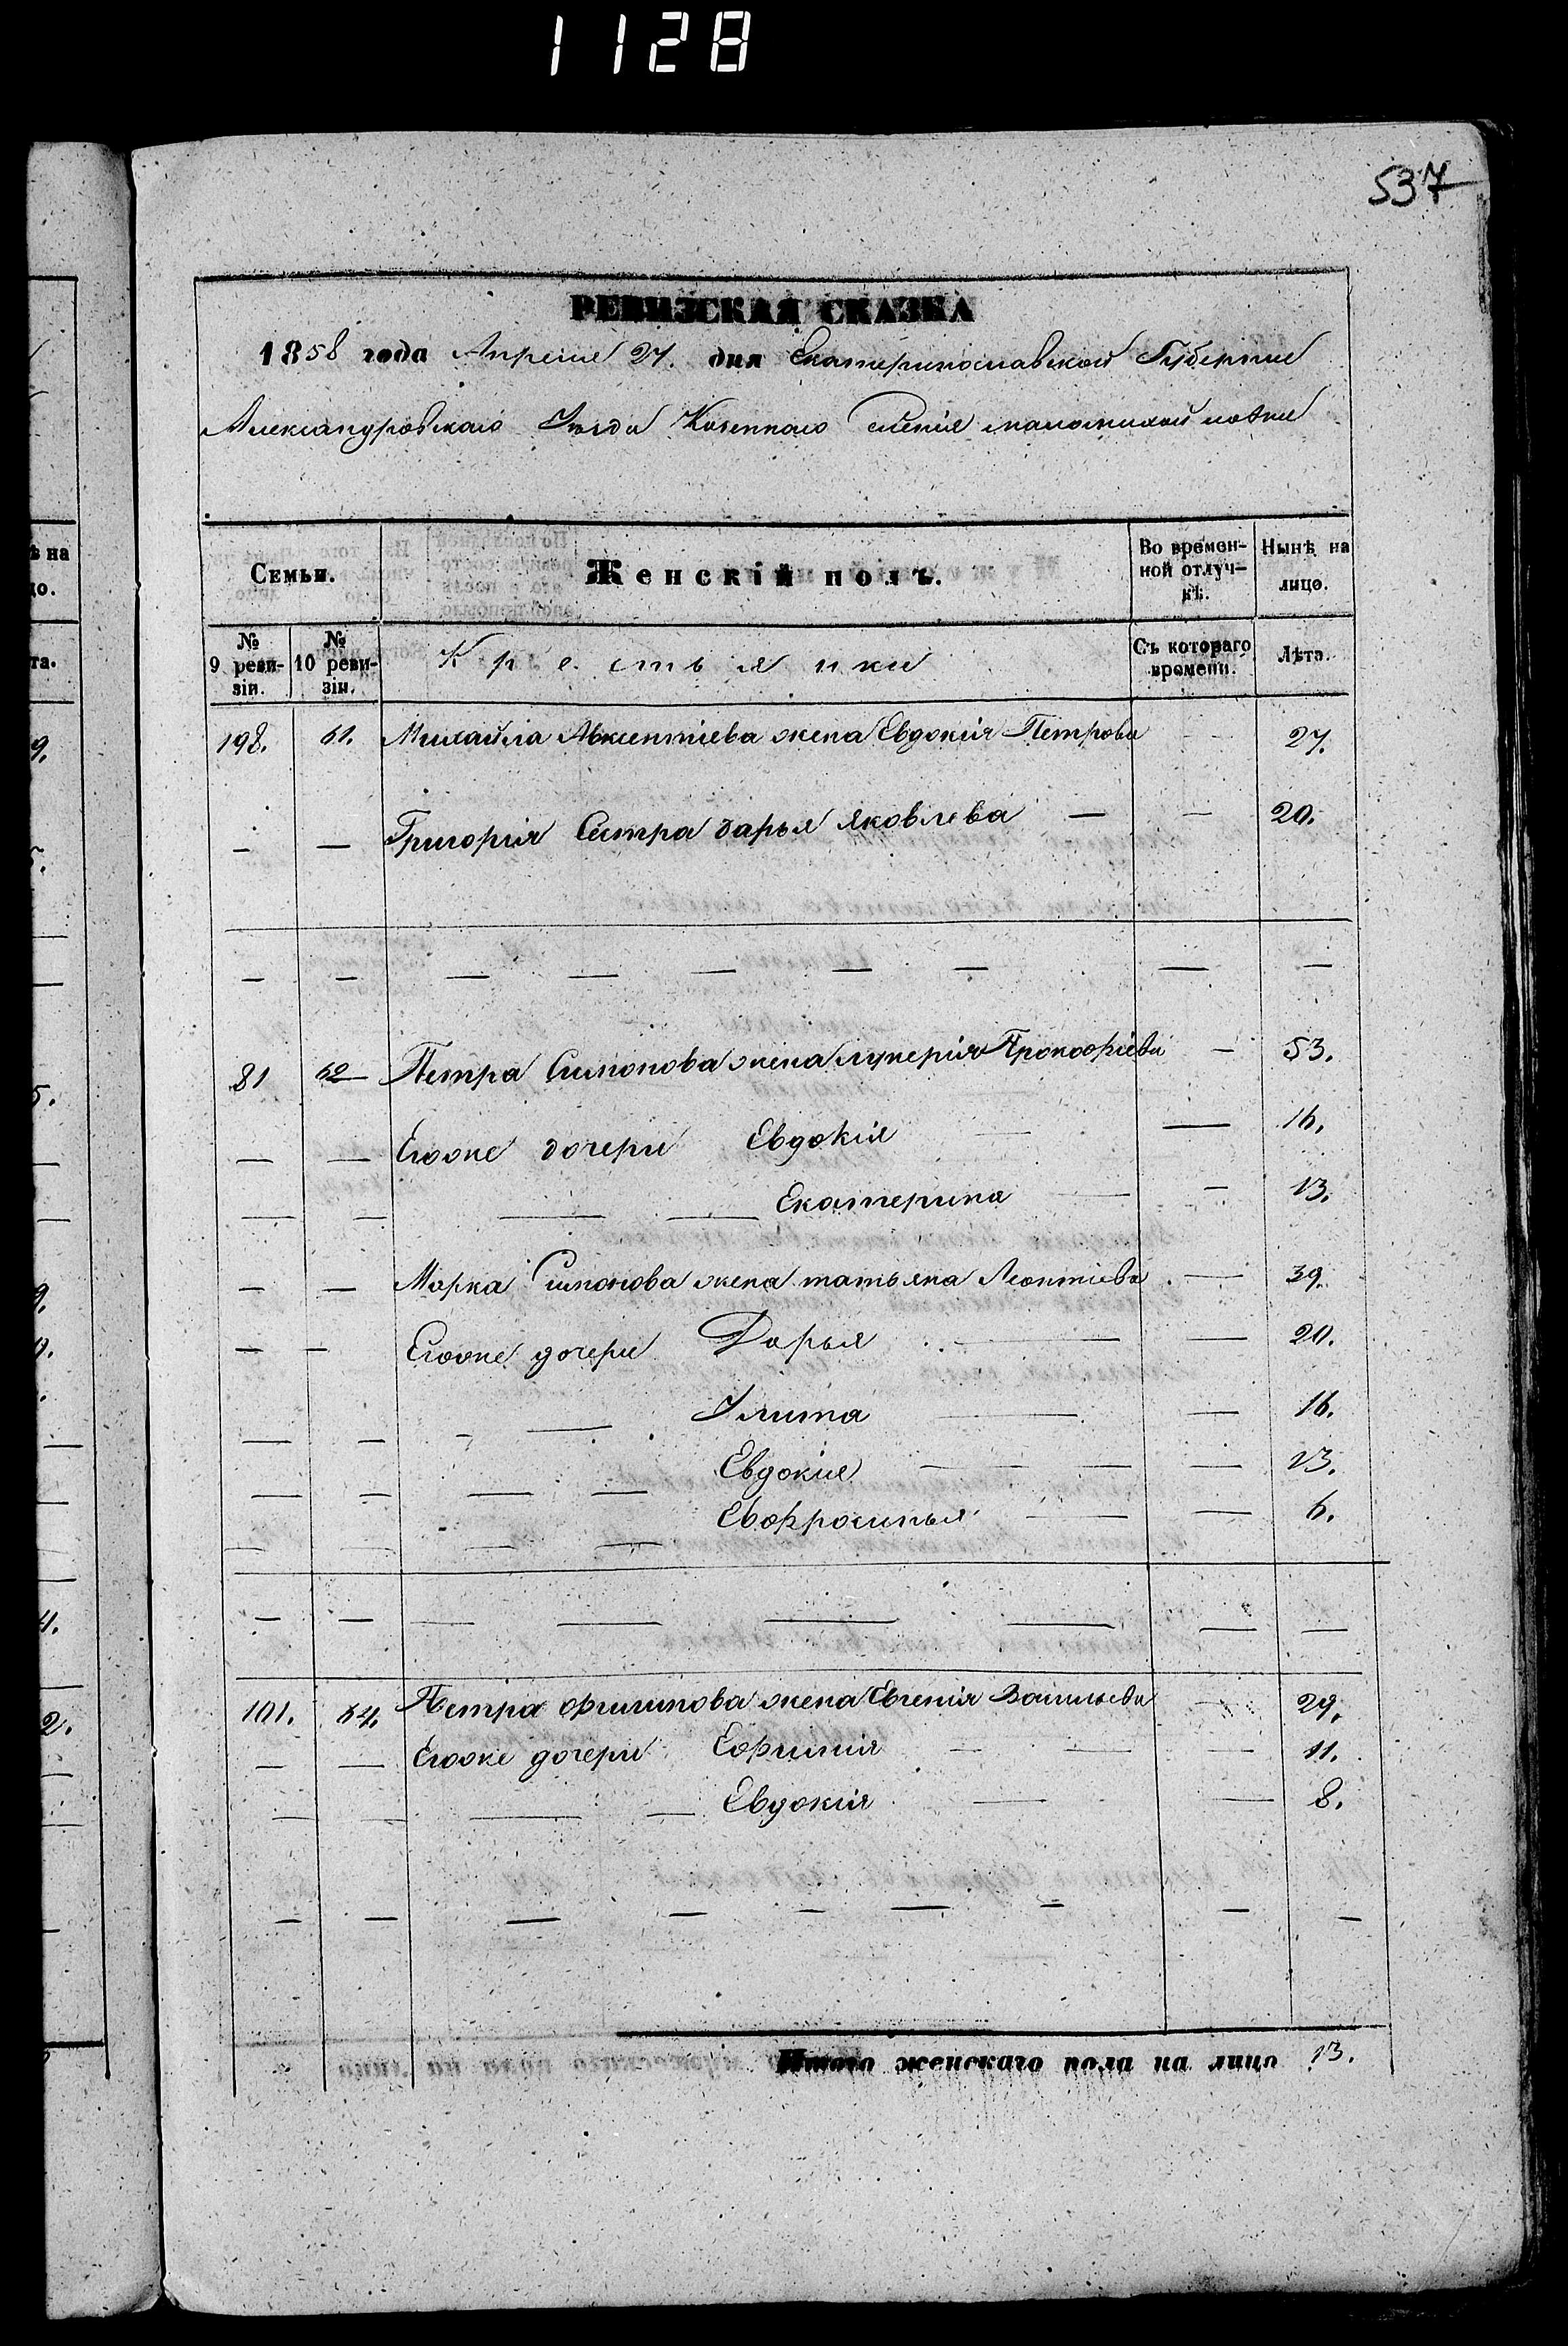 1128
537
РЕВИЗСКАЯ СКАЗКА
1858 года Апреля 27. дня Екатеринославской Губернии
Александровскаго Уѣзда Казеннаго Селенія
Семьи. Женскій полъ. Во времен- Нынѣ на
ной отлуч- лицо.
кѣ.
№ № Крестьянки Съ котораго Лѣта.
9 реви- 10 реви- времени.
зіи. зіи.
198. 61. Михайла Авксентіева жена Евдокія Петрова — — 27.
— — Григорія Сестра дарья Яковлева — — 20.
— — — — — — — — —
81 62 Петра Симонова жена лукерія Прокофіева — 53.
— — Егооне дочери Евдокія — — 16.
— — — — Екатерина — — 13.
— — Марка Симонова жена татьяна Леонтіева — 39.
— — Егооне дочери Дарья — — 20.
— — — — Улита — — 16.
— — — — Евдокия — — — 13.
— — — Евфросинья — — 6.
— — — — — — — —
101. 64. Петра Филипова жена Евгенія Васильева — 29.
— — Егооне дочери Ефимия — — — 11.
— — — — Евдокия — — 8.
— — — — — — — — —
Итого женскаго пола на лицо 13.
ѣ на
цо.
та.
9.
5.
5.
9.
4.
2.